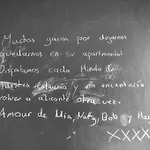 Muchas gracias por dejarnos
quedarnos en su apartamento!
Disfrutamos cada minuto de
nuestra estancia y encantaría
volver a alicante otra vez.
Amour de Mia, Bob y
XXXX